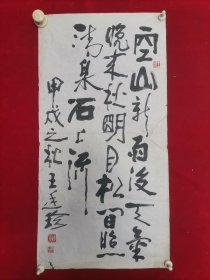 空山新雨後天氣
晚来秋明月松間照
清泉石上流
甲戌之秋王廷